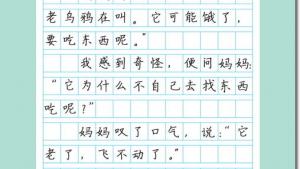 老乌鸦在叫。它可能饿了，
要吃东西呢。”
我感到奇怪，便问妈妈：
“它为什么不自己去找东西
吃呢？”
妈妈叹了口气，说：“它
老了，飞不动了。”